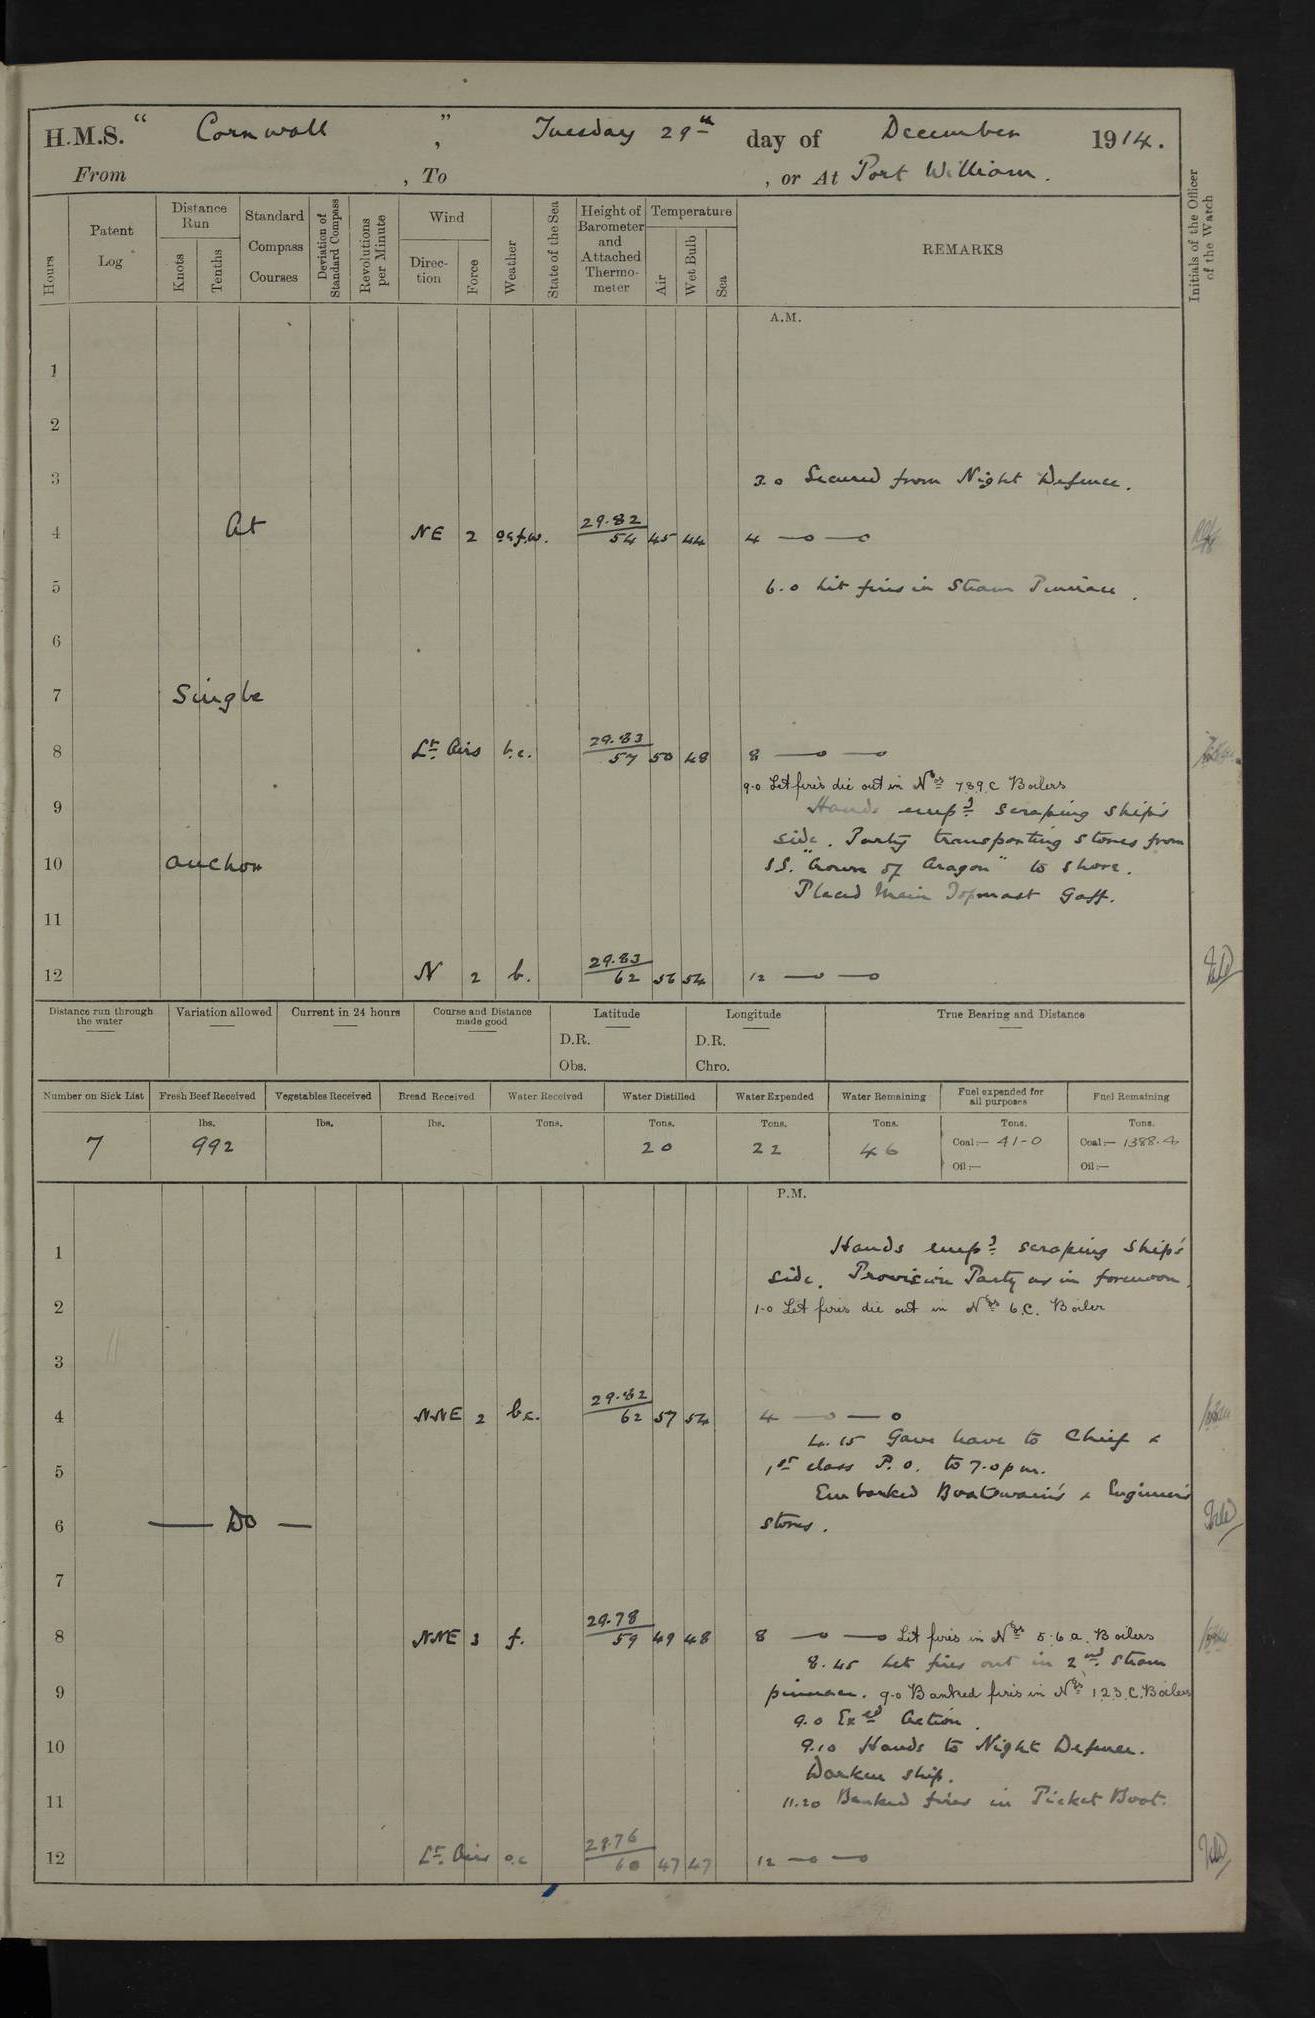 H.M.S. "Cornwall", Tuesday 29th day of December 1914.
From , To , or At Port William.
Hours
Patent Log
Distance Run
Knots
Tenths
Standard Compass Courses
Deviation of Standard Compass
Revolutions per Minute
Wind
Direction
Force
Weather
State of the Sea
Height of Barometer and Attached Thermometer
Temperature
Air
Wet Bulb
Sea
REMARKS
Initials of the Officer of the Watch
A.M.
1
2
3 3.0 Secured from Night Defence.
4 At NE 2 29.82 54 45 44 4 —o —o
5 6.0 Lit fires in Steam Pinnace.
6
7 Single
8 Lt. Airs b.c. 29.83 57 50 48 8 —o —o
9.0 Let fires die out in Nos 7.8.9.C Boilers
9 Hands empd scraping ship's
side. Party transporting stores from
10 anchor S.S. "Crown of Aragon" to shore.
Placed Main Topmast Gaff.
11
12 N 2 b. 29.83 62 56 54 12 —o —o
Distance run through the water
Variation allowed
Current in 24 hours
Course and Distance made good
Latitude
D.R.
Obs.
Longitude
D.R.
Chro.
True Bearing and Distance
Number on Sick List Fresh Beef Received Vegetables Received Bread Received Water Received Water Distilled Water Expended Water Remaining Fuel expended for all purposes Fuel Remaining
lbs. lbs. lbs. Tons. Tons. Tons. Tons. Tons. Tons.
7 992 20 22 46 Coal:— 41-0 Coal:— 1388.
Oil:— Oil:—
P.M.
1 Hands empd scraping ship's
side. Provision Party as in forenoon.
2 1.0 Let fires die out in Nos 6.C. Boiler
3
4 NNE 2 b.c. 29.82 62 57 54 4 —o —o
4.15 Gave leave to Chief &
5 1st class P.O. to 7.0 pm.
Embarked Boatswain's & Engineer's
6 — Do — stores.
7
8 NNE 3 f. 29.78 59 49 48 8 —o —o Lit fires in Nos 5.6 a. Boilers
8.45 Let fires out in 2nd Steam
9 pinnace. 9.0 Banked fires in Nos 1.2.3.C. Boilers
9.0 Exed Action.
10 9.10 Hands to Night Defence.
Darken ship.
11 11.20 Banked fires in Picket Boat.
12 Lt. Airs o.c 29.76 60 47 47 12 —o —o